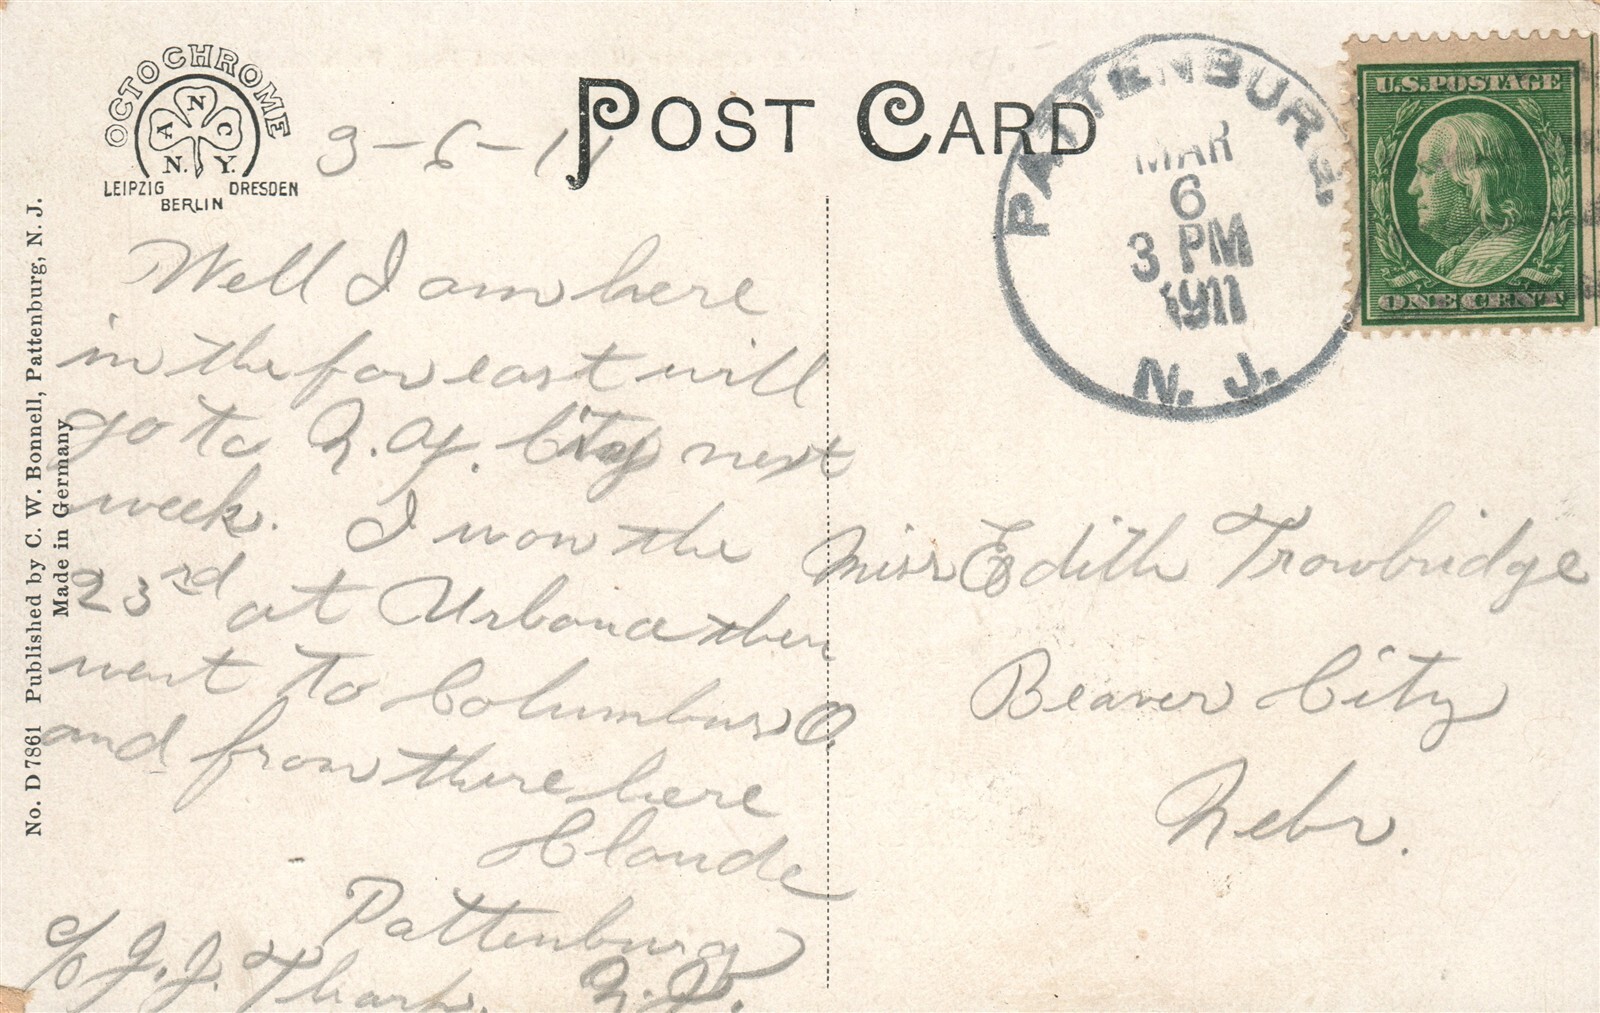 OCTOCHROME
N
A C
N. Y.
LEIPZIG DRESDEN
BERLIN
POST CARD
PATTENBURG,
MAR
6
3 PM
1911
N. J.
U.S. POSTAGE
ONE CENT
No. D 7861 Published by C. W. Bonnell, Pattenburg, N. J.
Made in Germany
3-6-11
Well I am here
in the far east will
go to N.Y. City next
week. I won the
23rd at Urbana then
went to Columbus O.
and from there here
Claude
Pattenburg
c/o J. J. Tharp. N.J.
Miss Edith Trowbridge
Beaver City
Nebr.